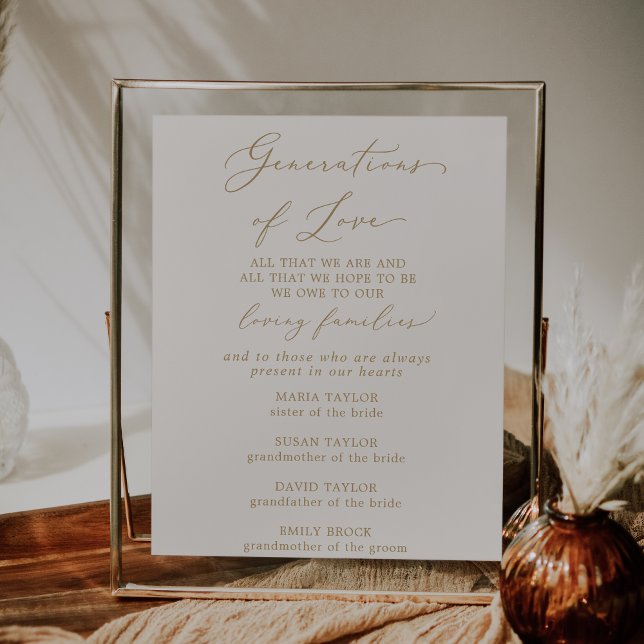 Generations
of Love
ALL THAT WE ARE AND
ALL THAT WE HOPE TO BE
WE OWE TO OUR
loving families
and to those who are always
present in our hearts
MARIA TAYLOR
sister of the bride
SUSAN TAYLOR
grandmother of the bride
DAVID TAYLOR
grandfather of the bride
EMILY BROCK
grandmother of the groom